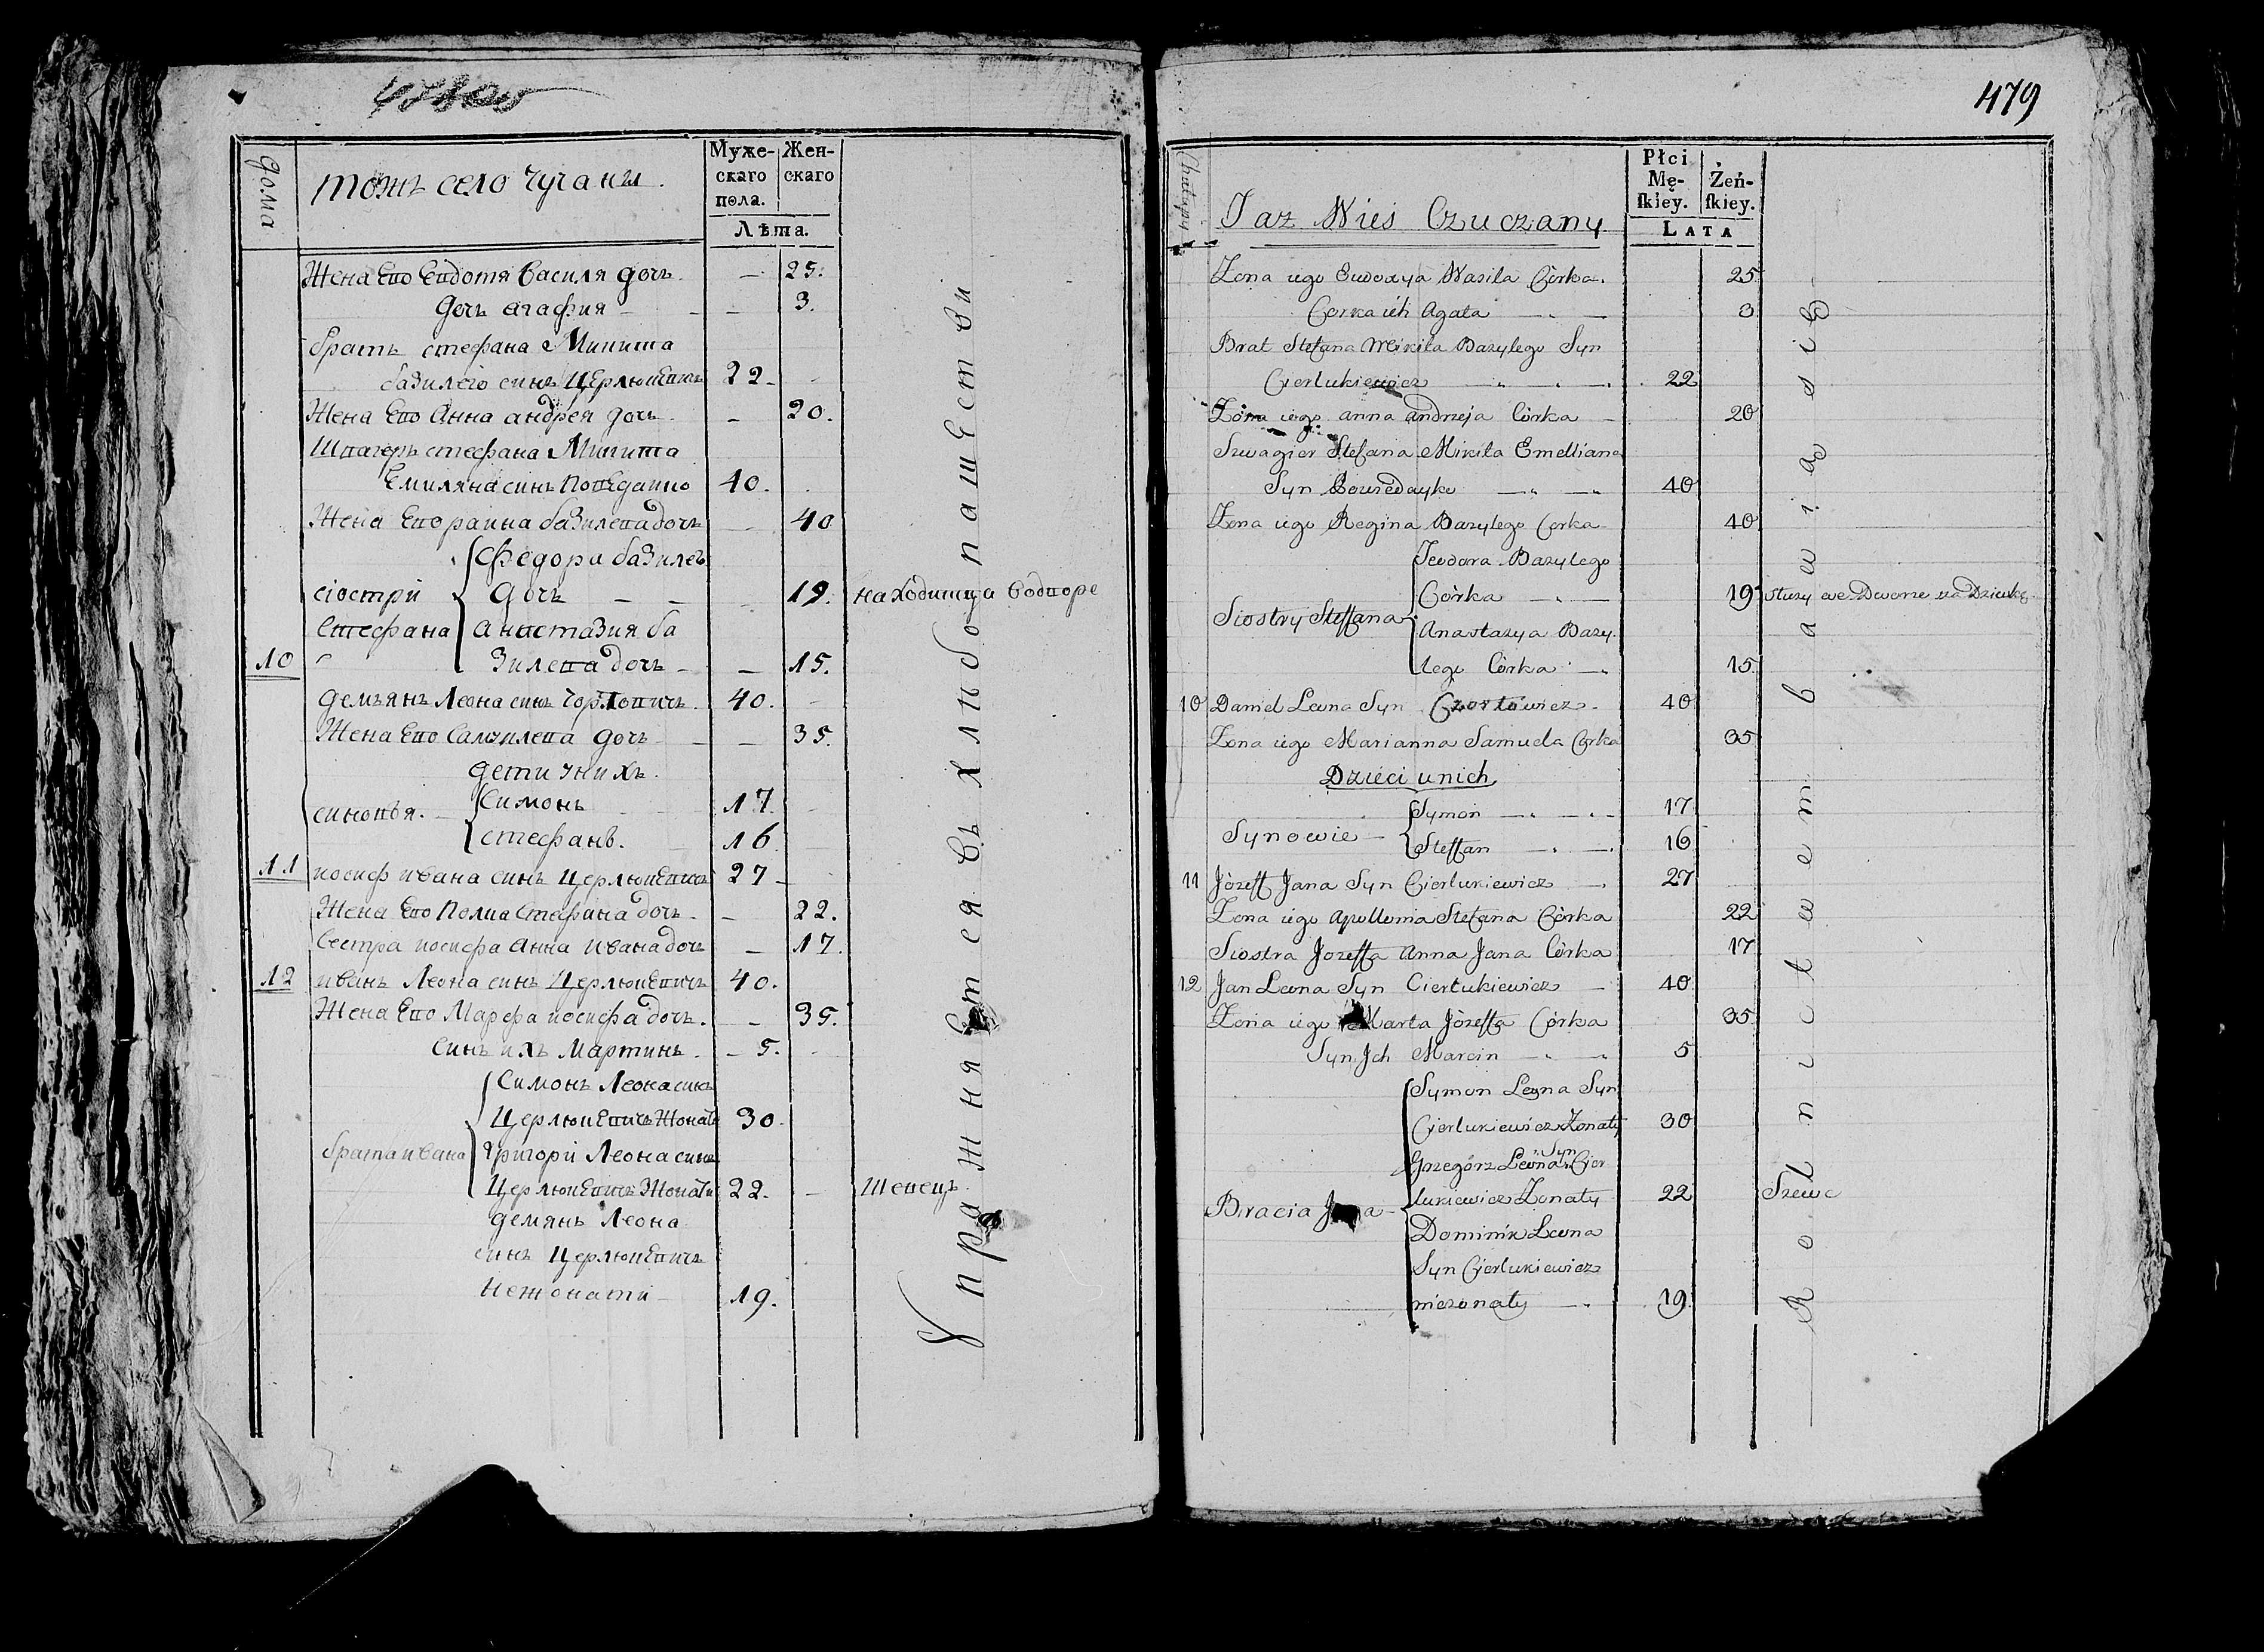 дома
тожъ село Чучаны.
Муже-
скаго
пола.
Жен-
скаго
Лѣта.
Жена Его Евдотя Василя дочь. — 25.
дочь агафия — — 3.
братъ стефана Микита
базилего синъ Церлюкевичъ 22 -
Жена Его Анна андрея дочь — 20.
Швагеръ стефана Микита
Емиляна синъ Поведайко 40.
Жена Его раина базилева дочь — 40
сіостри стефана
Федора базилев
дочь — — 19. находитца Водворе
анастазия ба
зилева дочь — — 15.
10
демьянъ Леона синъ Чортовичъ. 40. -
Жена Его Самуилева дочь — 35.
дети унихъ.
синовья.
Симонъ 17. -
стефанъ. 16 -
11 иосиф ивана синъ Церлюкевичъ 27 -
Жена Его Полия Стефана дочь — 22.
Сестра иосифа Анна ивана дочь — 17.
12 иванъ Леона синъ Церлюкевичъ 40.
Жена Его Марфа иосифа дочь. — 35.
синъ ихъ Мартинъ. — 5. -
брата ивана
Симонъ Леона синъ
Церлюкевичъ Жонати 30.
Григори Леона синъ
Церлюкевичъ Жонати 22. - Шевецъ.
демянъ Леона
синъ Церлюкевичъ
нежонати — 19.
Упражняется въ хлѣбопашестви
479
Chałupy
Taz Wies Czuczany
Płci
Mę-
ſkiey.
Żeń-
ſkiey.
LATA
Zona iego Ewdoxya Wasila Córka. 25
Corka ich Agata — 3
Brat Stefana Mikita Bazylego Syn
Cierlukiewicz — 22
Zona iego anna andrzeja Córka — 20
Szwagier Stefana Mikita Emelliana
Syn Powiedayko — 40
Zona iego Regina Bazylego Corka 40
Siostry Steffana
Teodora Bazylego
Córka — 19 służy we Dworze za Dziewkę.
Anastazya Bazy
lego Córka — 15
10 Daniel Leona Syn Czortowicz. 40
Zona iego Marianna Samuela Corka 35
Dzieci unich
Synowie —
Symon — 17
Steffan — 16
11 Józeff Jana Syn Cierlukiewicz — 27
Zona iego Apollonia Stefana Córka 22
Siostra Jozeffa Anna Jana Córka 17
12 Jan Leona Syn Cierlukiewicz — 40
Zona iego Marta Józeffa Córka 35
Syn Jch Marcin — 5
Bracia Jana —
Symon Leona Syn
Cierlukiewicz Zonaty 30
Grzegórz Leona Syn Cier
lukiewicz Zonaty 22 Szewc
Dominik Leona
Syn Cierlukiewicz
niezonaty — 19
Rolnictwem bawią się